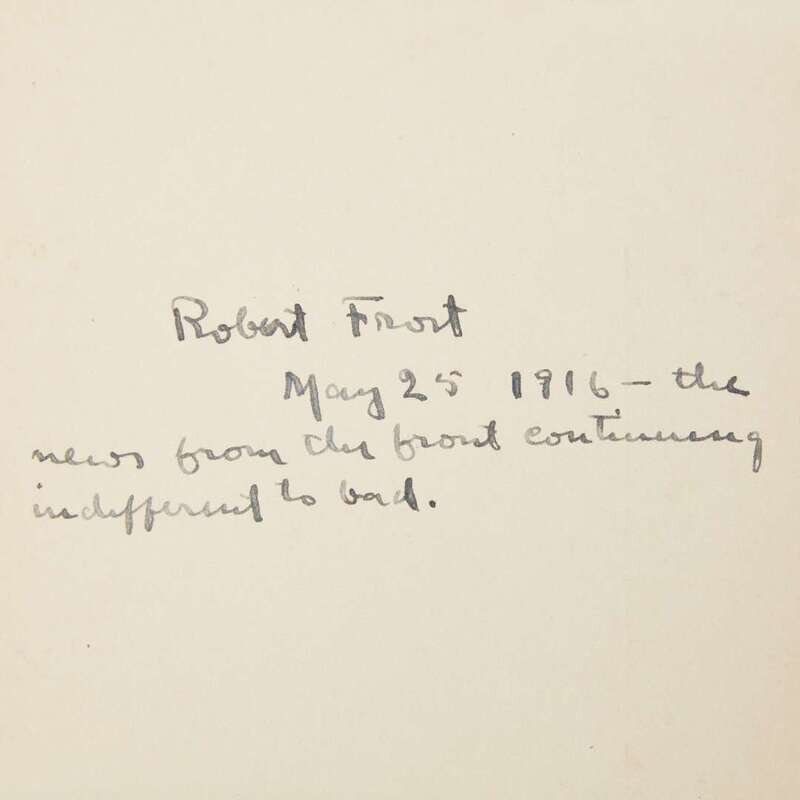 Robert Frost
May 25 1916 – the
news from the front continuing
indifferent to bad.